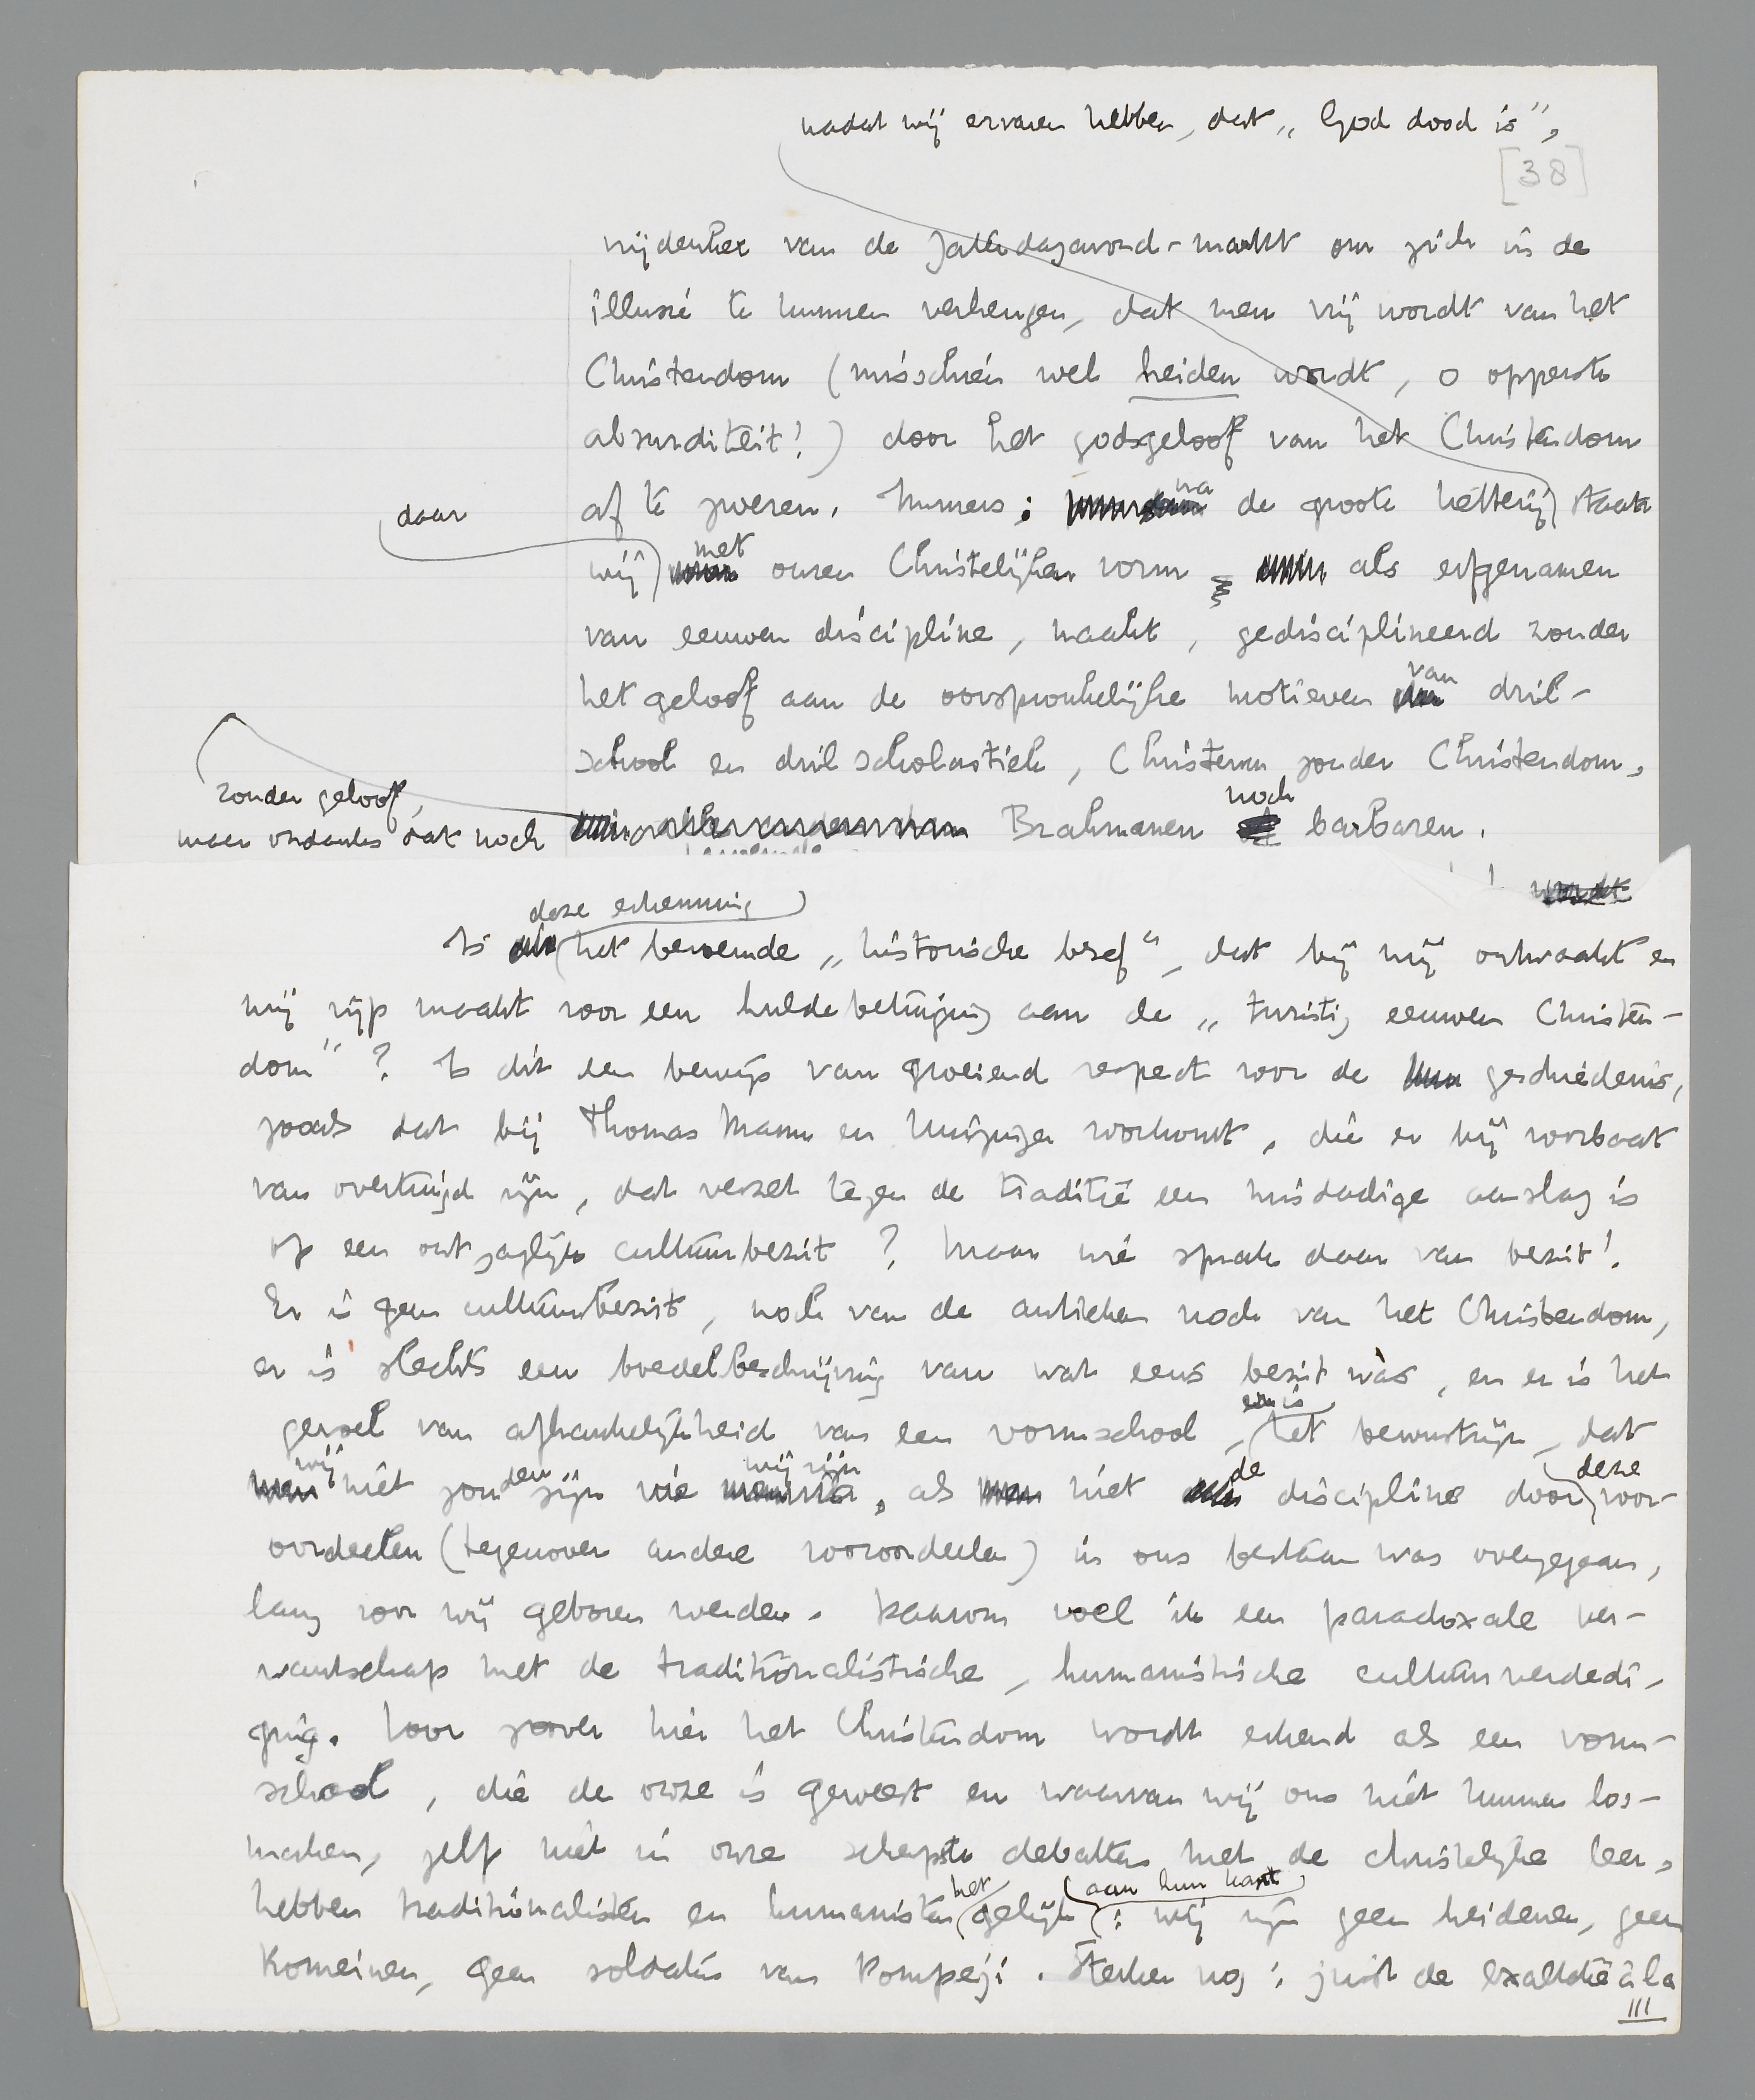 nadat wij ervaren hebben, dat „God dood is”,
[38]
vrijdenker van de Zaterdagavond-markt om zich in de
illusie te kunnen verheugen, dat men vrij wordt van het
Christendom (misschien wel heiden wordt, o opperste
absurditeit!) door het godsgeloof van het Christendom
af te zweren. Immers: na de groote ketterij staan
daar
wij met onzen Christelijken vorm als erfgenamen
van eeuwen discipline, naakt, gedisciplineerd zonder
het geloof aan de oorspronkelijke motieven van dril-
school en drilscholastiek, Christenen zonder Christendom,
zonder geloof,
maar ondanks dat noch Brahmanen noch barbaren.
Is deze erkenning het beroemde „historische besef”, dat bij mij ontwaakt en
mij rijp maakt voor een huldebetuiging aan de „twintig eeuwen Christen-
dom”? Is dit een bewijs van groeiend respect voor de geschiedenis,
zooals dat bij Thomas Mann en Huizinga voorkomt, die er bij voorbaat
van overtuigd zijn, dat verzet tegen de traditie een misdadige aanslag is
op een ontzaglijk cultuurbezit? Maar wie sprak daar van bezit!
Er is geen cultuurbezit, noch van de antieken noch van het Christendom,
er is slechts een boedelbeschrijving van wat eens bezit wàs, en er is het
gevoel van afhankelijkheid van een vormschool, er is het bewustzijn, dat
wij niet zouden zijn wie wij zijn, als niet de discipline door deze voor-
oordeelen (tegenover andere vooroordeelen) in ons bestaan was overgegaan,
lang voor wij geboren werden. Daarom voel ik een paradoxale ver-
wantschap met de traditionalistische, humanistische cultuurverdedi-
ging. Voor zoover hier het Christendom wordt erkend als een vorm-
school, die de onze is geweest en waarvan wij ons niet kunnen los-
maken, zelf niet in onze scherpste debatten met de christelijke leer,
hebben traditionalisten en humanisten het gelijk aan hun kant: wij zijn geen heidenen, geen
Romeinen, geen soldaten van Pompeji. Sterker nog: juist de exaltatie à la
III